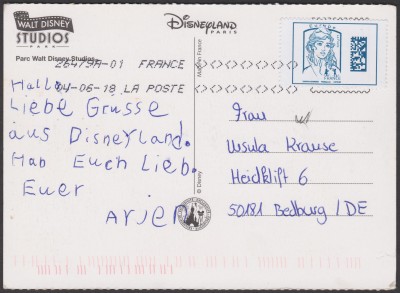 WALT DISNEY
STUDIOS
PARK
Parc Walt Disney Studios
DISNEYLAND
PARIS
26479A-01 FRANCE
04-06-18 LA POSTE
Hallo
Liebe Grüsse
aus Disneyland.
Hab Euch Lieb.
Euer
Arjen
© Disney
Frau
Ursula Krause
Heidklift 6
50181 Bedburg / DE